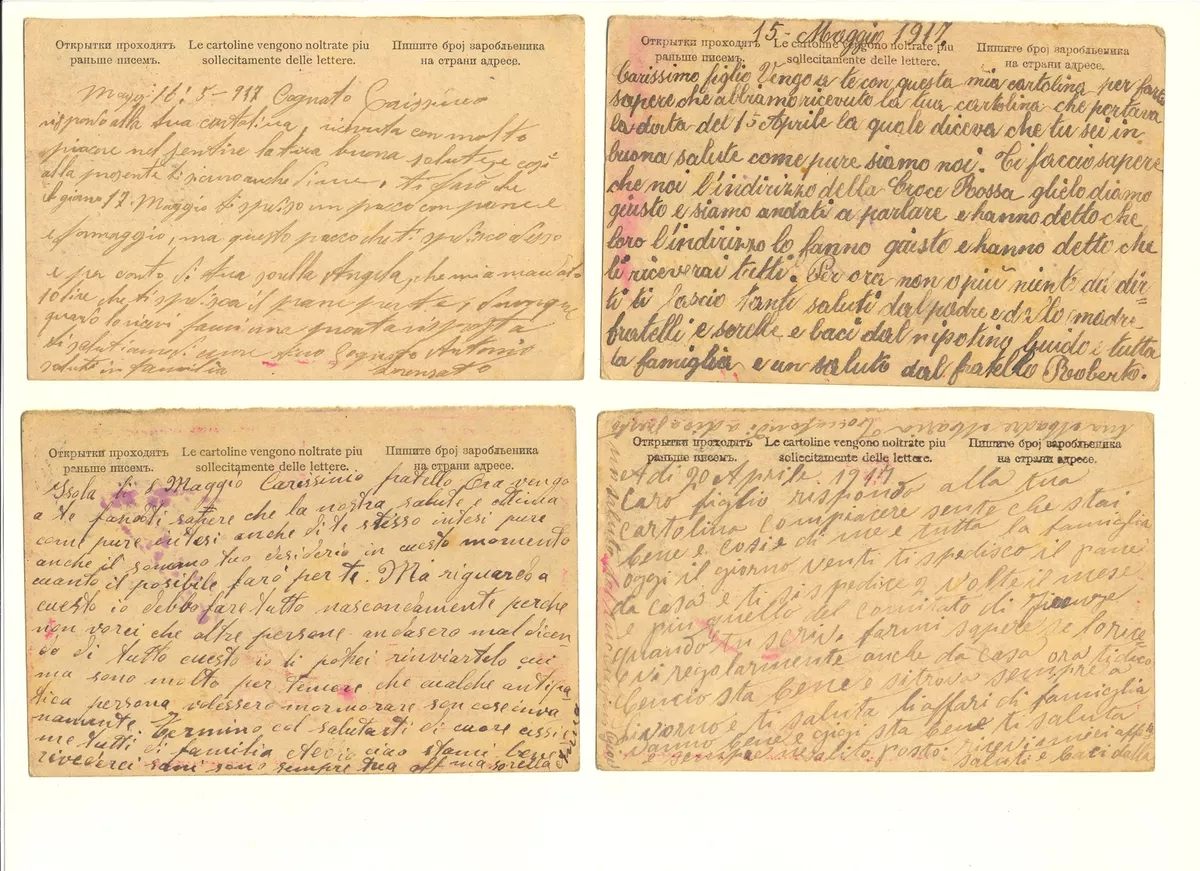 Открытки проходятъ
раньше писемъ.
Le cartoline vengono noltrate piu
sollecitamente delle lettere.
Пишите број заробљеника
на страни адресе.
5-917 Cognato Carissimo
rispondo alla tua cartolina, ricevuta con molto
piacere nel sentire la tua buona salute e così
alla presente ti siamo anche
il giorno 17. Maggio ti un pacco con pane e
e formaggio, ma questo pacco che ti spedisco adesso
e per conto di tua sorella Angela, che mi a mandato
a dire che ti spedisca il pane per te, dunque
quando lo ricevi fammi una pronta risposta
ti salutiamo di cuore tuo Cognato Antonio
saluti in familia Lorenzato
15 - Maggio 1917.
Открытки проходятъ
раньше писемъ.
Le cartoline vengono noltrate piu
sollecitamente delle lettere.
Пишите број заробљеника
на страни адресе.
Carissimo figlio Vengo a te con questa mia cartolina per farti
sapere che abbiamo ricevuto la tua cartolina che portava
la data del 15 Aprile la quale diceva che tu sei in
buona salute come pure siamo noi. Ti faccio sapere
che noi l'indirizzo della Croce Rossa glielo diamo
giusto e siamo andati a parlare e hanno detto che
loro l'indirizzo lo fanno giusto e hanno detto che
li riceverai tutti. Per ora non o più niente da dir=
ti ti lascio tanti saluti dal padre e dalla madre
fratelli e sorelle e baci dal nipotino Guido e tutta
la famiglia e un saluto dal fratello Roberto.
Открытки проходятъ
раньше писемъ.
Le cartoline vengono noltrate piu
sollecitamente delle lettere.
Пишите број заробљеника
на страни адресе.
Isola li 8 Maggio Carissimo fratello Ora vengo
a te farti sapere che la nostra salute e ottima
come pure intesi anche di te stesso intesi pure
anche il sommo tuo desiderio in cuesto momento
cuanto il posibile farò per te. Ma riguardo a
cuesto io debbo fare tutto nascondamente perche
non vorei che altre persone andasero mal dicen
do di tutto cuesto io ti potrei rinviartelo cui
ma sono molto per temere che cualche antipa
tica persona volessero mormorare son cose inva
namente. Termino col salutarti di cuore assie
me tutti di familia Addio ciao stami bene
rivederci sani sono sempre tua aff ma sorella
Открытки проходятъ
раньше писемъ.
Le cartoline vengono noltrate piu
sollecitamente delle lettere.
Пишите број заробљеника
на страни адресе.
Adi 20 Aprile 1917
Caro figlio rispondo alla tua
cartolina con piacere sente che stai
bene e cosi e di me e tutta la famiglia
oggi il giorno venti ti spedisco il pane
da casa e ti si spedice 2 volte il mese
e piu quello del comitato di Firenze
quando ti scrivi farmi sapere se lo rice=
vi regolarmente anche da casa ora ti dico
Cencio sta bene e si trova sempre a
Livorno e ti saluta li affari di famiglia
vanno bene e gigi sta bene ti saluta
e sempre al solito posto.
saluti e baci dalla
tua Madre Maria